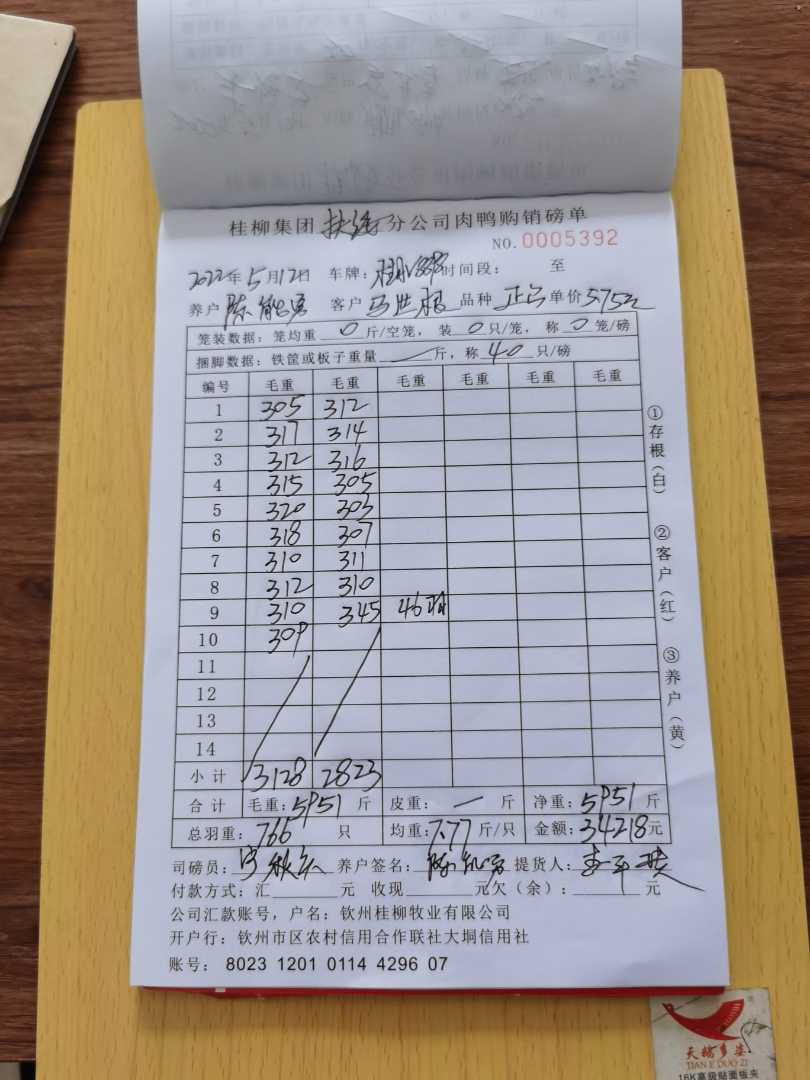 桂柳集团 扶绥 分公司肉鸭购销磅单
NO.0005392
2022年5月12日 车牌: 时间段: 至
养户 陈 客户 马世根 品种 单价5.75元
笼装数据: 笼均重 0 斤/空笼, 装 0 只/笼, 称 0 笼/磅
捆脚数据: 铁筐或板子重量 — 斤, 称 40 只/磅
编号 毛重 毛重 毛重 毛重 毛重 毛重
1 305 312
2 317 314
3 312 316
4 315 305
5 320 303
6 318 307
7 310 311
8 312 310
9 310 345 46羽
10 309
11
12
13
14
小计 3128 2823
合计 毛重: 5951 斤 皮重: — 斤 净重: 5951 斤
总羽重: 766 只 均重: 7.77 斤/只 金额: 34218元
司磅员: 养户签名: 陈 提货人: 李
付款方式: 汇 元 收现 元欠(余): 元
公司汇款账号, 户名: 钦州桂柳牧业有限公司
开户行: 钦州市区农村信用合作联社大垌信用社
账号: 8023 1201 0114 4296 07
①存根(白)
②客户(红)
③养户(黄)
天鹅多姿
TIAN E DUO ZI
16K高级贴面板夹